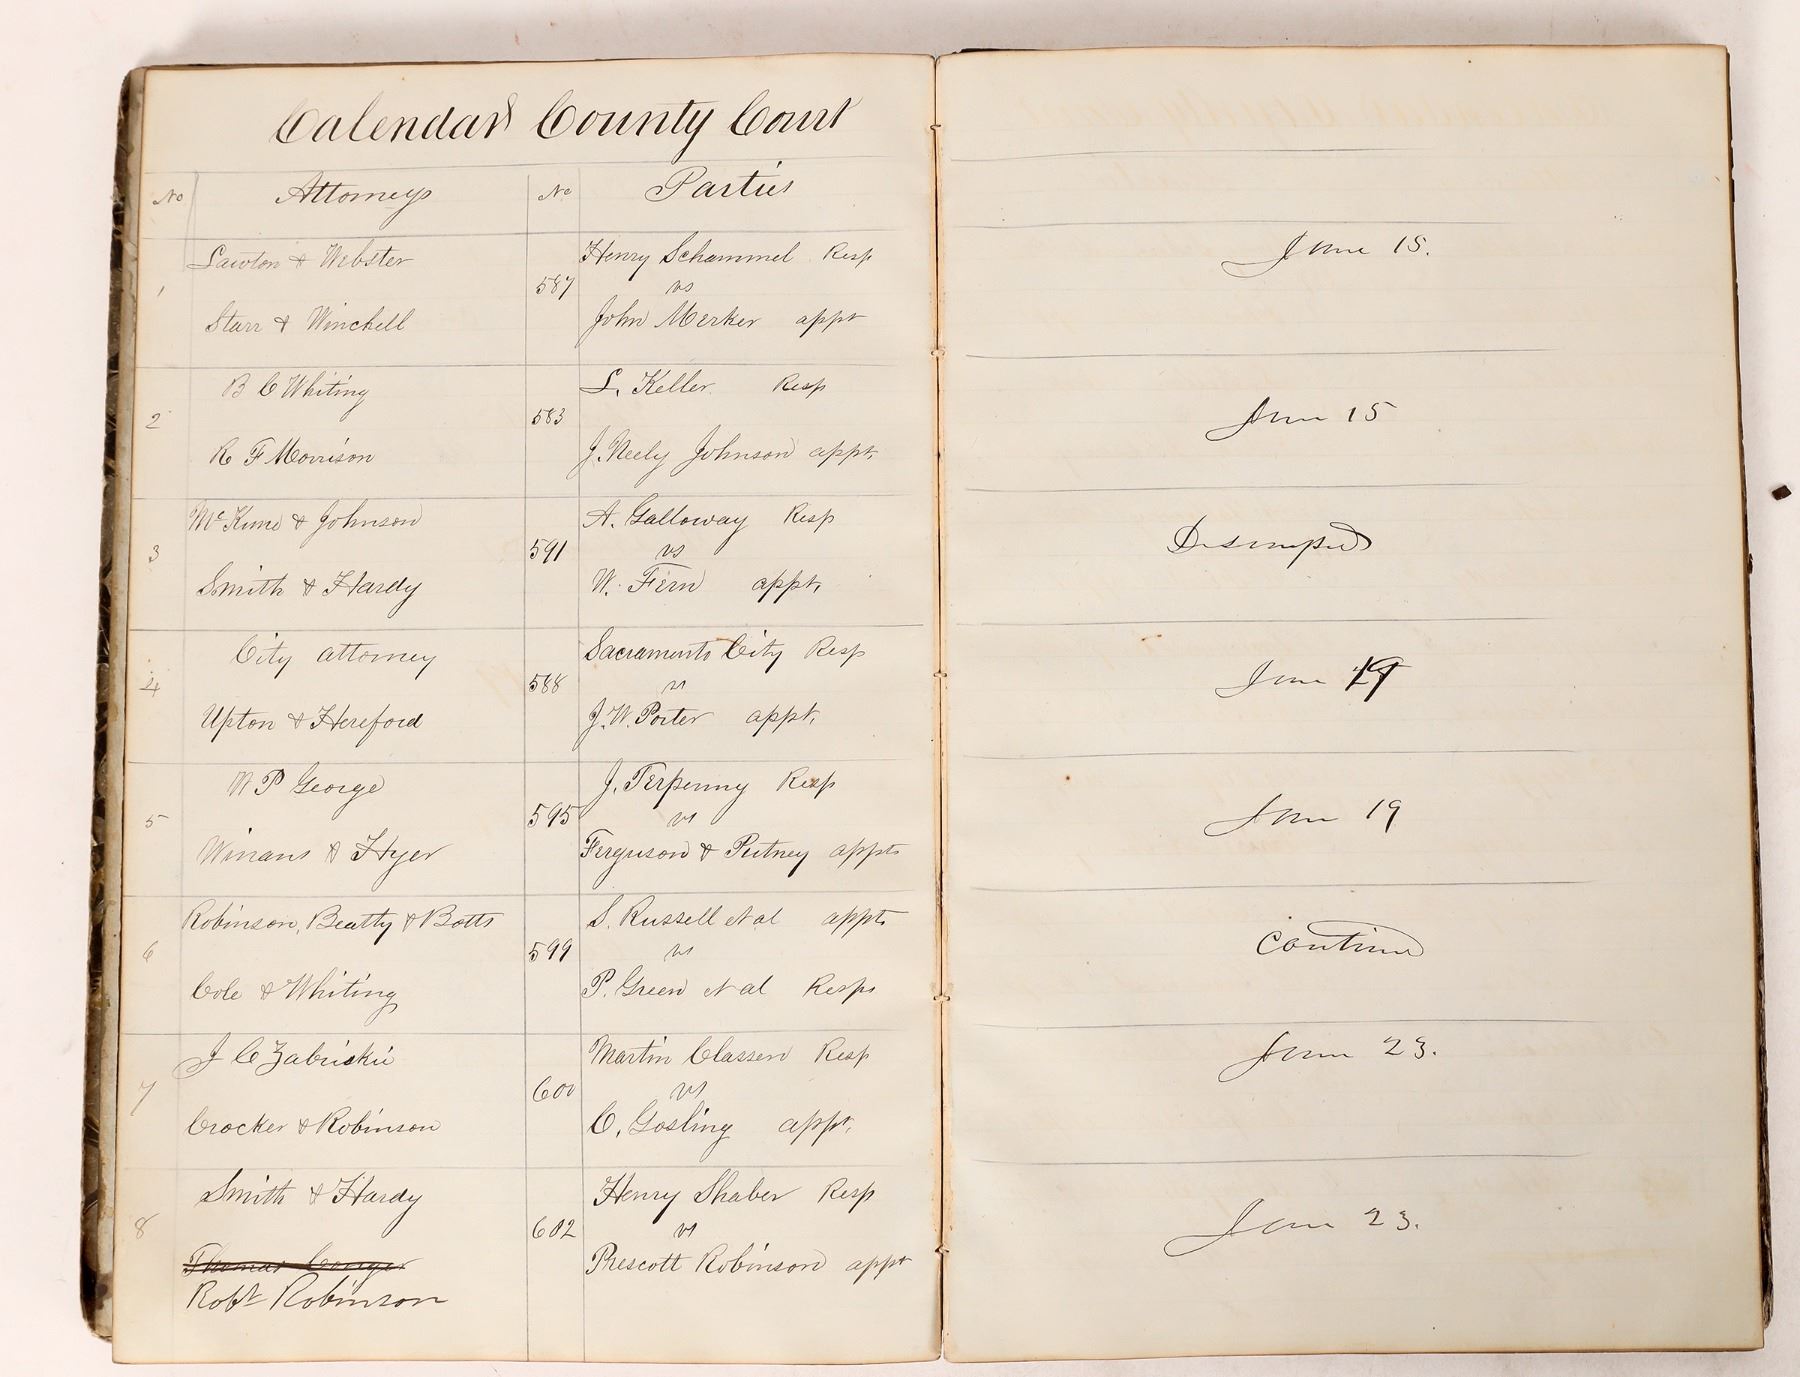 Calendar County Court
No Attorneys No Parties
Lawton & Webster Henry Schammel Resp June 15.
1 587 vs
Starr & Winchell John Merker appt
B C Whiting L. Keller Resp
2 583 June 15
R F Morrison J. Neely Johnson appt.
McKune & Johnson A. Galloway Resp
3 591 vs Dismissed
Smith & Hardy W. Fern appt.
City attorney Sacramento City Resp
4 588 vs June 19
Upton & Hereford J. W. Porter appt.
W P George J. Terpenny Resp
5 595 vs June 19
Winans & Hyer Ferguson & Putney appts
Robinson, Beatty & Botts S. Russell et al appts
6 599 vs continue
Cole & Whiting P. Green et al Resps
J C Zabriskie Martin Classen Resp June 23.
7 600 vs
Crocker & Robinson C. Gosling appt.
Smith & Hardy Henry Shaber Resp
8 602 vs June 23.
Thomas Conger Prescott Robinson appt
Robt Robinson